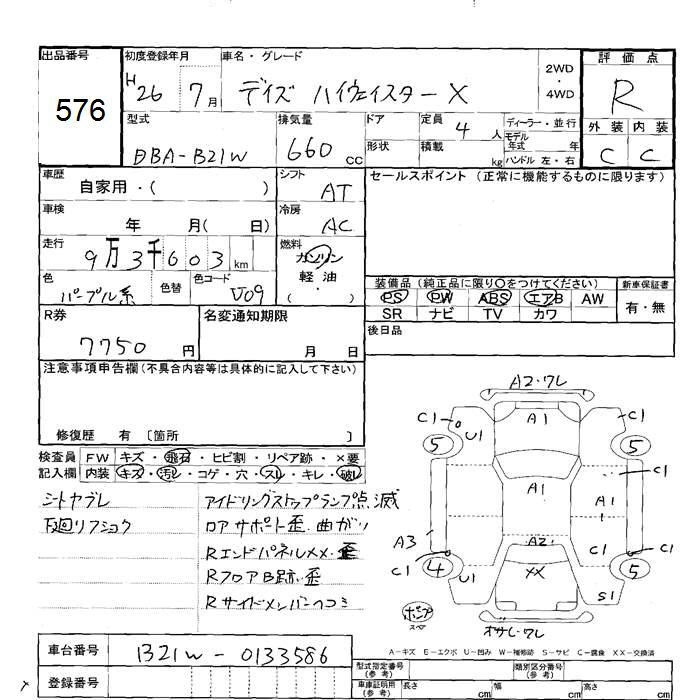 出品番号
576
初度登録年月
H26 7月
車名・グレード
デイズ ハイウェイスターX
2WD・4WD
評価点
R
外装 内装
C C
型式
DBA-B21W
排気量
660 cc
ドア
形状
定員 4人
積載 kg
ディーラー・並行
モデル年式 年
ハンドル 左・右
車歴
自家用・( )
シフト
AT
車検
年 月( 日)
冷房
AC
走行
9万3千603km
燃料
ガソリン
軽油
・
色
パープル系
色替
色コード
V09
セールスポイント(正常に機能するものに限ります)
装備品(純正品に限り○をつけてください)
新車保証書
PS PW ABS エアB AW
SR ナビ TV カワ
有・無
R券
7750円
名変通知期限
月 日
後日品
注意事項申告欄(不具合内容等は具体的に記入して下さい)
修復歴 有 〔箇所 〕
検査員記入欄
FW キズ・飛石・ヒビ割・リペア跡・×要
内装 キズ・汚レ・コゲ・穴・スレ・キレ・破レ
シートヤブレ
下廻リフショク
アイドリングストップランプ点滅
ロアサポート歪、曲がり
Rエンドパネル××・歪
RフロアB跡・歪
Rサイドメンバーヘコミ
A2・ワレ
C1 A1 C1
5 U1 5
A1 C1
A1
A3 A2 C1 C1
C1 4 U1 XX 5
S1
ポンプ
スペア
オサレ・ワレ
A－キズ E－エクボ U－凹み W－補修跡 S－サビ C－腐食 XX－交換済
車台番号
B21W-0133586
登録番号
型式指定番号(参考)
類別区分番号(参考)
車庫証明用(参考)
長さ cm 幅 cm 高さ cm